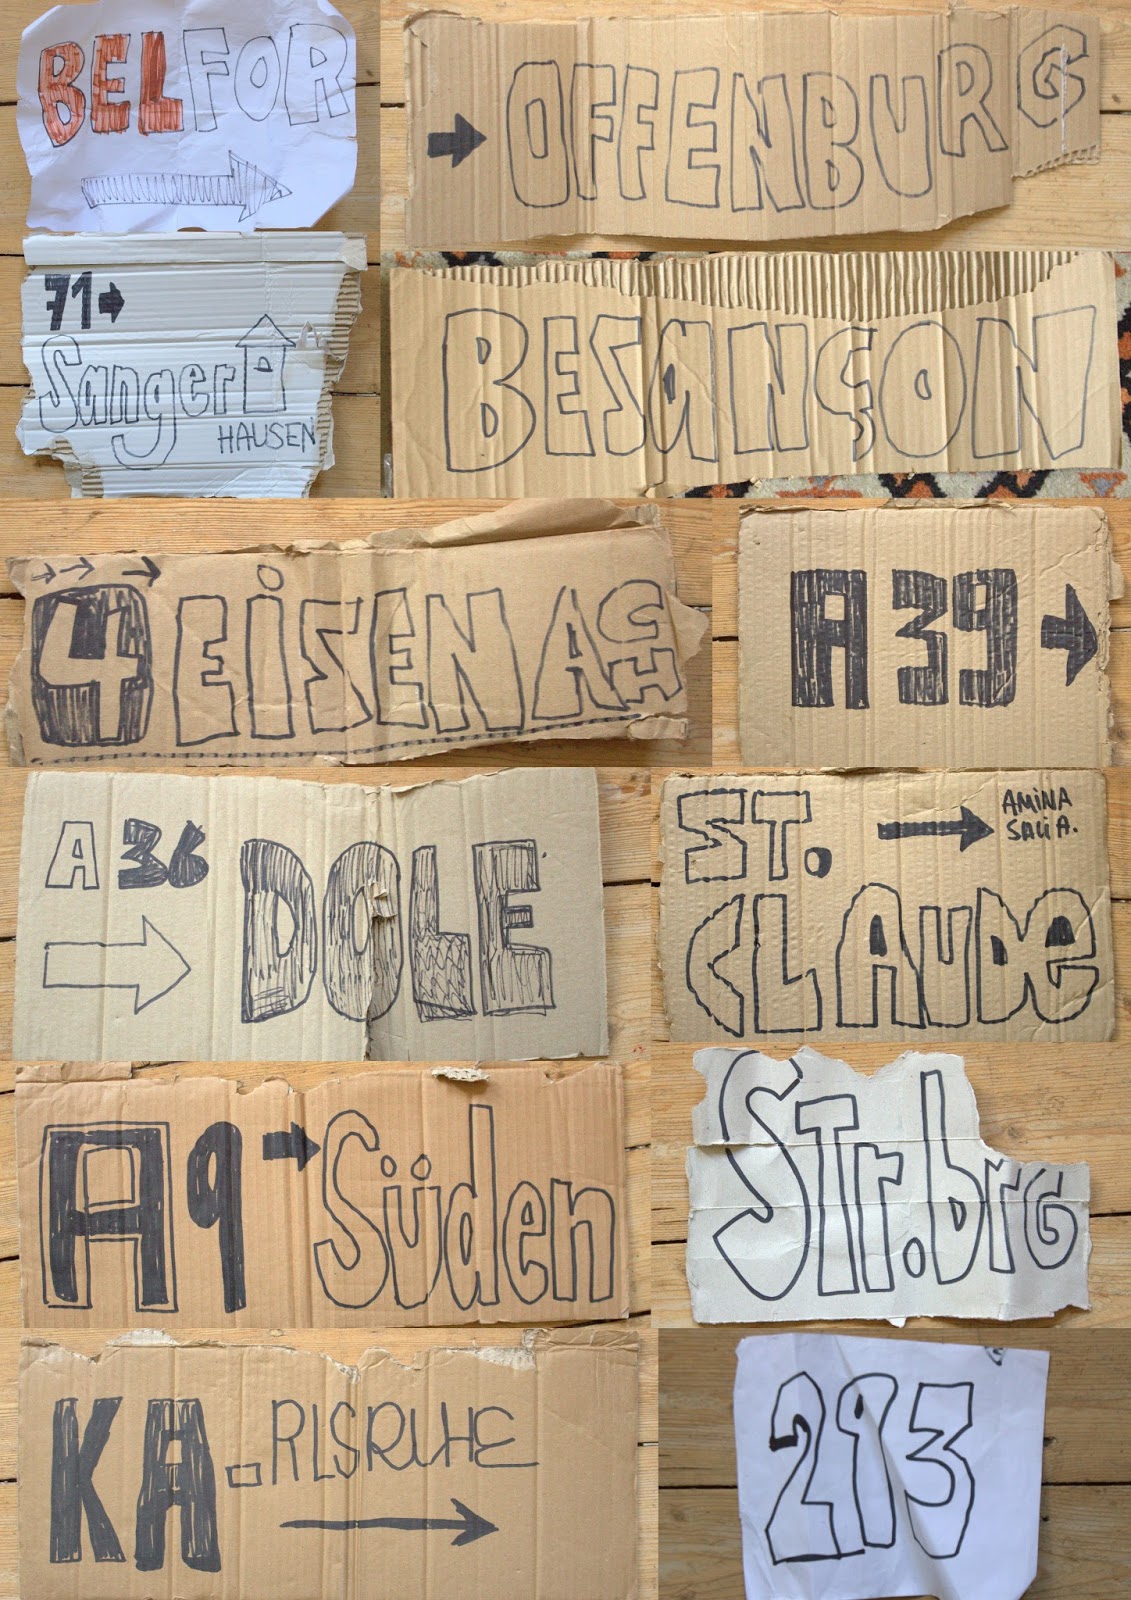 BELFOR
OFFENBURG
71
Sanger
HAUSEN
BESANÇON
4 EISENACH
A39
A36
DOLE
ST.
AMINA
SALIA.
CLAUDE
A9 Süden
STr.brG
KA.RLSRUHE
293